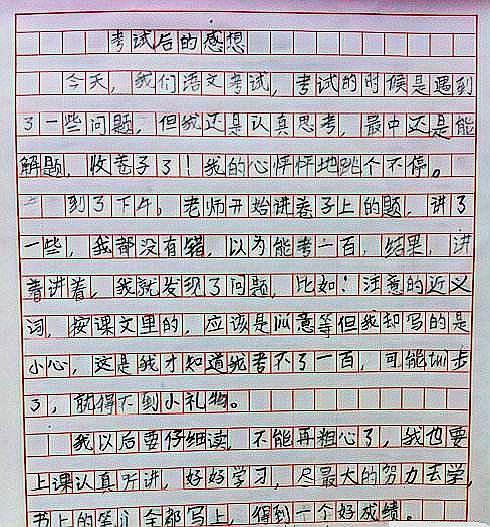 考试后的感想
今天，我们语文考试，考试的时候是遇到
了一些问题，但我还是认真思考，最中还是能
解题，收卷子了！我的心怦怦地跳个不停。
到了下午，老师开始讲卷子上的题，讲了
一些，我都没有错，以为能考一百，结果，讲
着讲着，我就发现了问题，比如：注意的近义
词，按课文里的，应该是 意等但我却写的是
小心，这是我才知道我考不了一百，可能 步
了，就得不到小礼物。
我以后要仔细读，不能再粗心了，我也要
上课认真听讲，好好学习，尽最大的努力去学，
书上的 全都写上，得到一个好成绩。